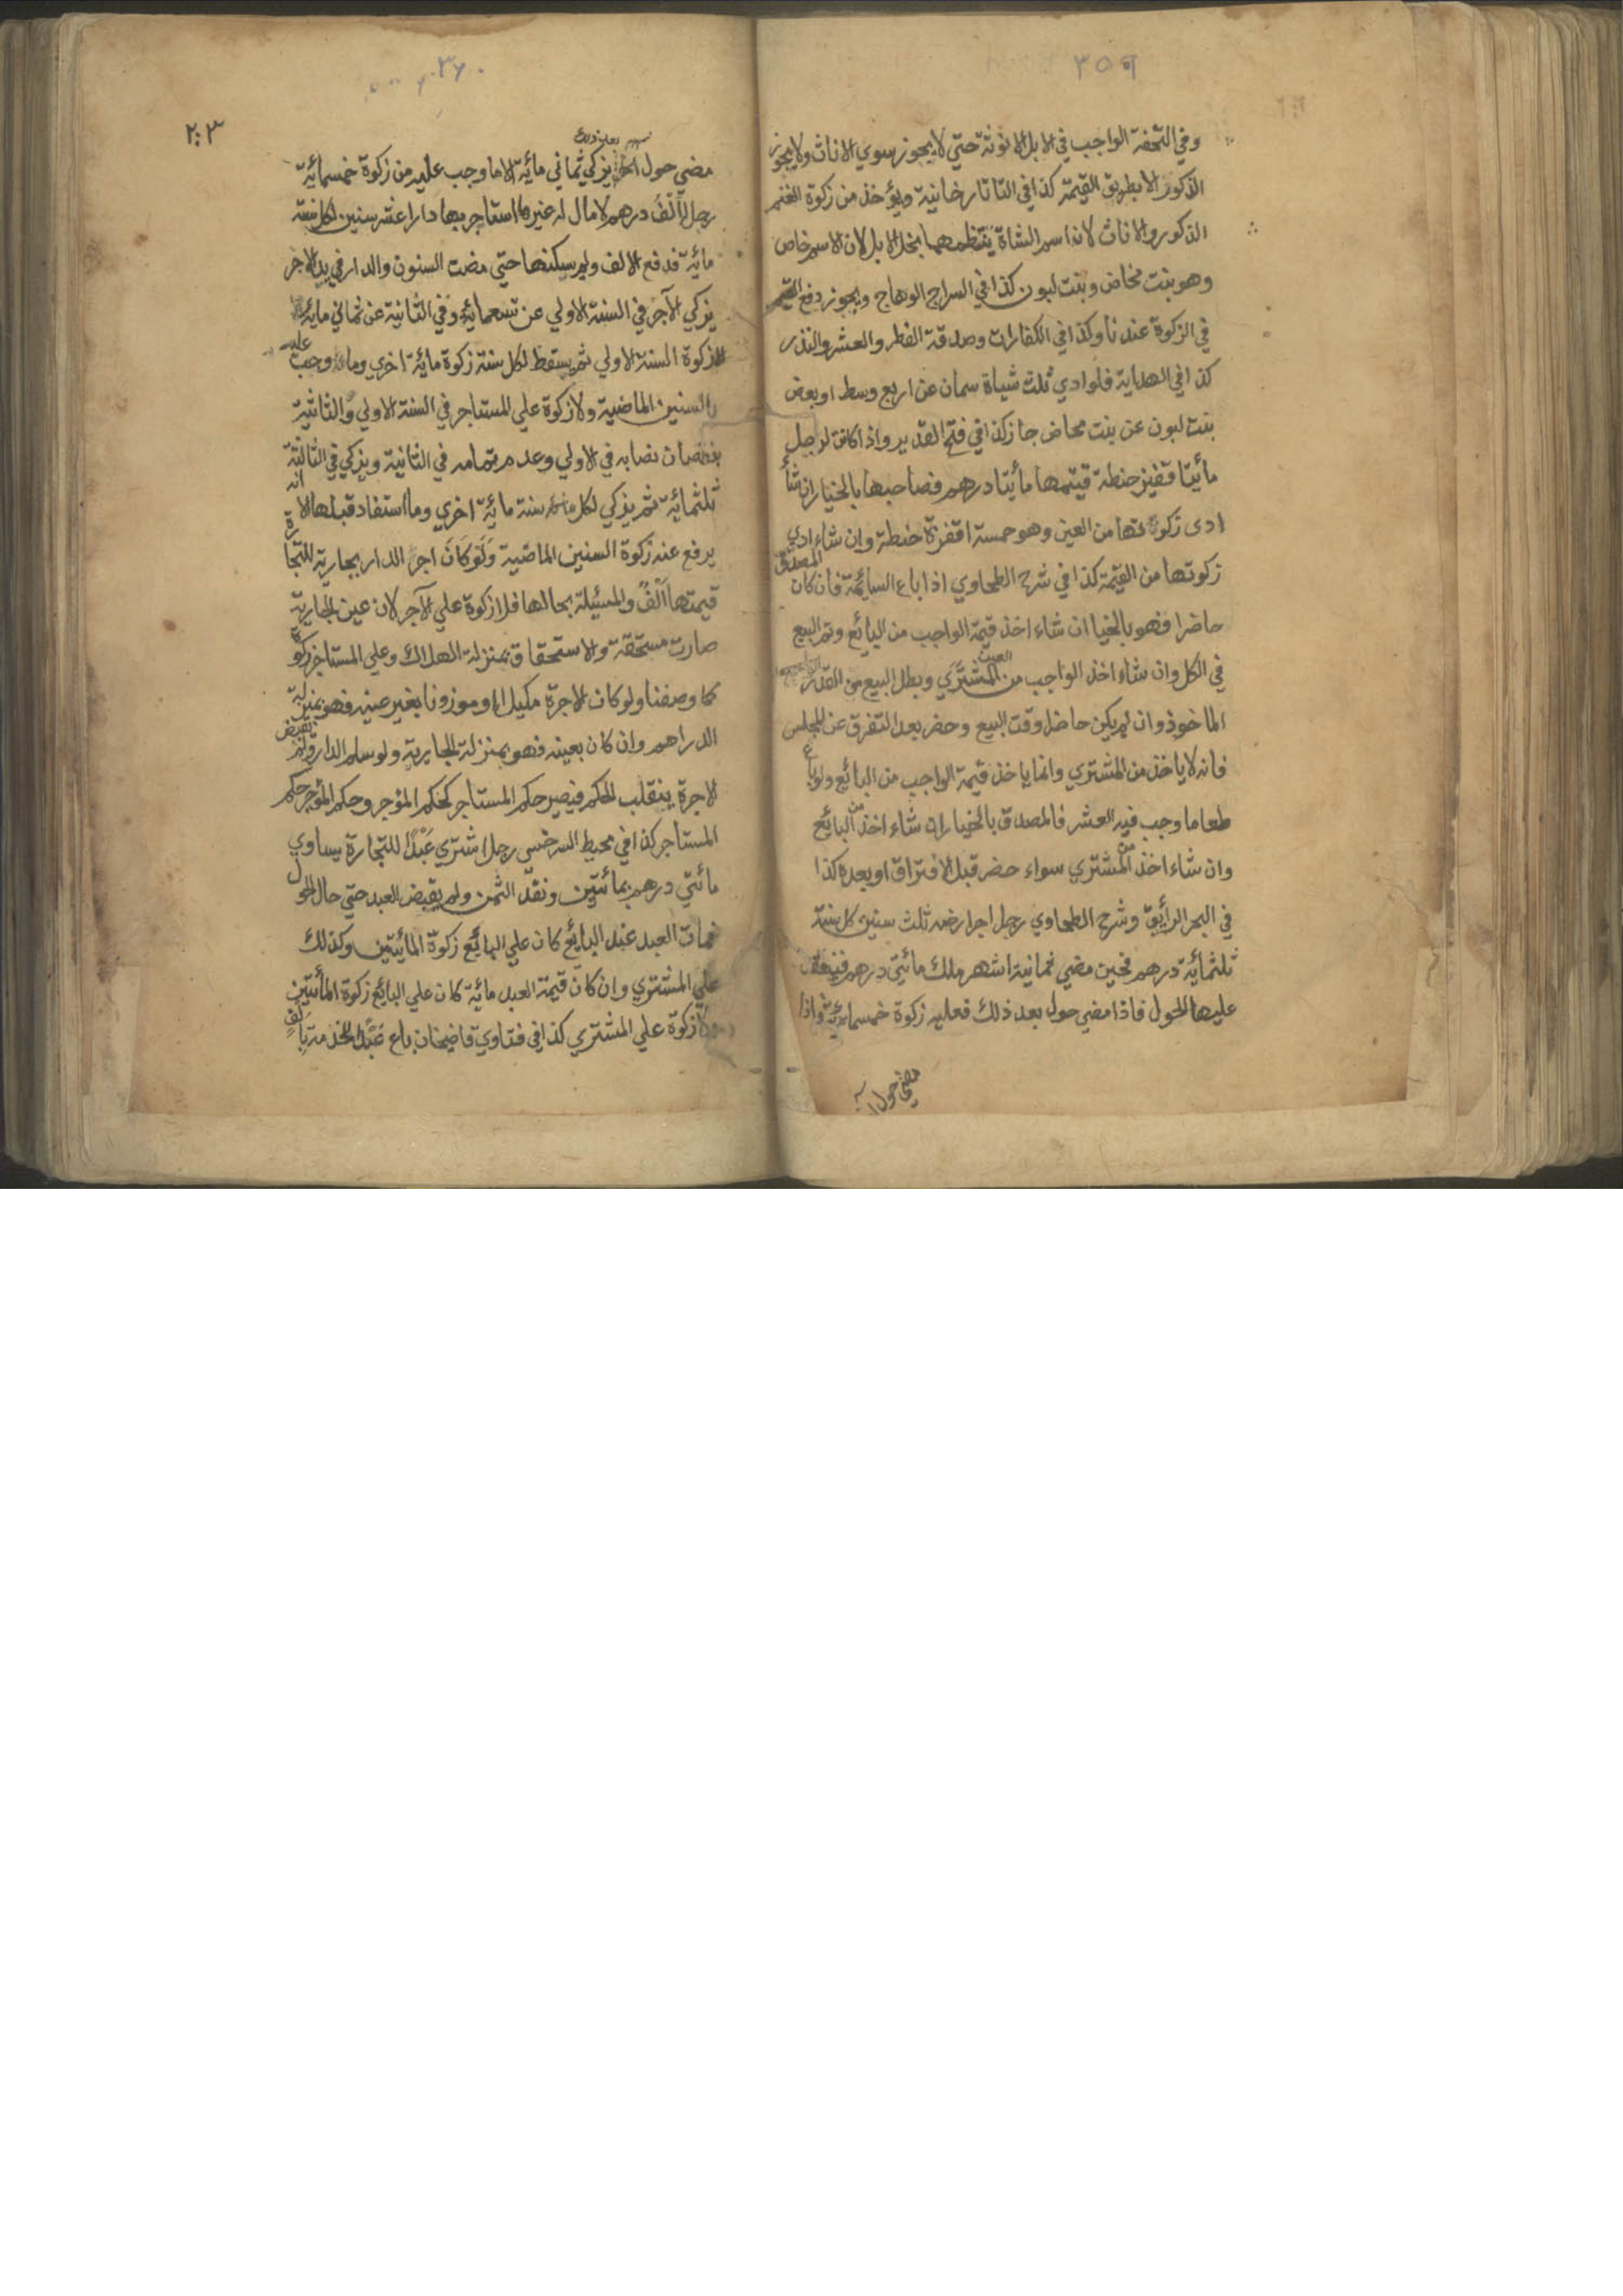 ٣٥٩
وفي التحفة الواجب في الابل الانوثة حتي لا يجوز سوي الاناث ولا يجوز
الذكور الا بطريق القيمة كذا في التاتارخانية ويؤخذ من زكوة الغنم
الذكور والاناث لان اسم الشاة ينتظمهما بخلا الابل لان الاسم خاص
وهو بنت مخاض وبنت لبون كذا في السراج الوهاج ويجوز دفع القيم
في الزكوة عندنا وكذا في الكفارات وصدقة الفطر والعشر والنذر
كذا في الهداية فلو ادي ثلث شياة سمان عن اربع وسط او بعض
بنت لبون عن بنت مخاض جاز كذا في فتح القدير واذا كانت لرجل
مأيتا قفيز حنطة قيتمها مأيتا درهم فصاحبها بالخيار ان شأ
ادى زكوتها من العين وهو خمسة اقفزة حنطة وان شاء ادي
زكوتها من القيمة كذا في شرح الطحاوي اذا باع السائمة فان كان المصدق
حاضرا فهو بالخيا ان شاء اخذ قيمة الواجب من البائع وتم البيع
في الكل وان شاء اخذ الواجب من العين المشتري وبطل البيع من القدر
الماخوذ وان لم يكن حاضرا وقت البيع وحضر بعد التفرق عن المجلس
فانه لا ياخذ من المشتري وانما ياخذ قيمة الواجب من البائع ولو باع
طعاما وجب فيه العشر فالمصدق بالخيار ان شاء اخذ من البائع
وان شاء اخذ من المشتري سواء حضر قبل الافتراق او بعده كذا
في البحر الرايق وشرح الطحاوي رجل اجر ارضه ثلث سنين كل سنة
ثلثمائة درهم فحين مضي ثمانية اشهر ملك مائتي درهم فينعقد
عليها الحول فاذا مضي حول بعد ذلك فعليه زكوة خمسمائة واذا
مضي حول
٣٦٠
٢٠٣
بعد ذلك
مضي حول اخر يزكي ثماني مائة الا ما وجب عليه من زكوة خمسمائة
رجل له الف درهم لا مال له غيرها استاجر بها دارا عشر سنين لكل سنة
مائة فدفع الالف ولم يسكنها حتي مضت السنون والدار في يد الاجر
يزكي الآجر في السنة الاولي عن تسعمائة وفي الثانية عن ثماني مائة
الا زكوة السنة الاولي ثم يسقط لكل سنة زكوة مائة اخري وما وجب عليه
بالسنين الماضية ولا زكوة علي المستاجر في السنة الاولي والثانية
بنقصان نصابه في الاولي وعدم تمامه في الثانية ويزكي في الثالثة
ثلثمائة ثم يزكي لكل سنة مائة اخري وما استفاد قبلها الا انه
يرفع عنه زكوة السنين الماضية ولو كان اجر الدار بجارية للتجارة
قيمتها الف والمسئلة بحالها فلا زكوة علي الآجر لان عين الجارية
صارت مستحقة والاستحقاق بمنزلة الهلاك وعلي المستاجر زكوة
كما وصفنا ولو كان الاجرة مكيلا او موزونا بغير عينه فهو بمنزلة
الدراهم وان كان بعينه فهو بمنزلة الجارية ولو سلم الدار ولم يقبض
الاجرة ينقلب الحكم فيصير حكم المستاجر كحكم المؤجر وحكم المؤجر حكم
المستاجر كذا في محيط السرخسي رجل اشتري عبدا للتجارة يساوي
مائتي درهم بمائتين ونقد الثمن ولم يقبض العبد حتي حال الحول
فمات العبد عند البايع كان علي البايع زكوة المائتين وكذلك
علي المشتري وان كان قيمة العبد مائة كان علي البايع زكوة المأتين
ولا زكوة علي المشتري كذا في فتاوي قاضيخان باع عبدا للخدمة بالف